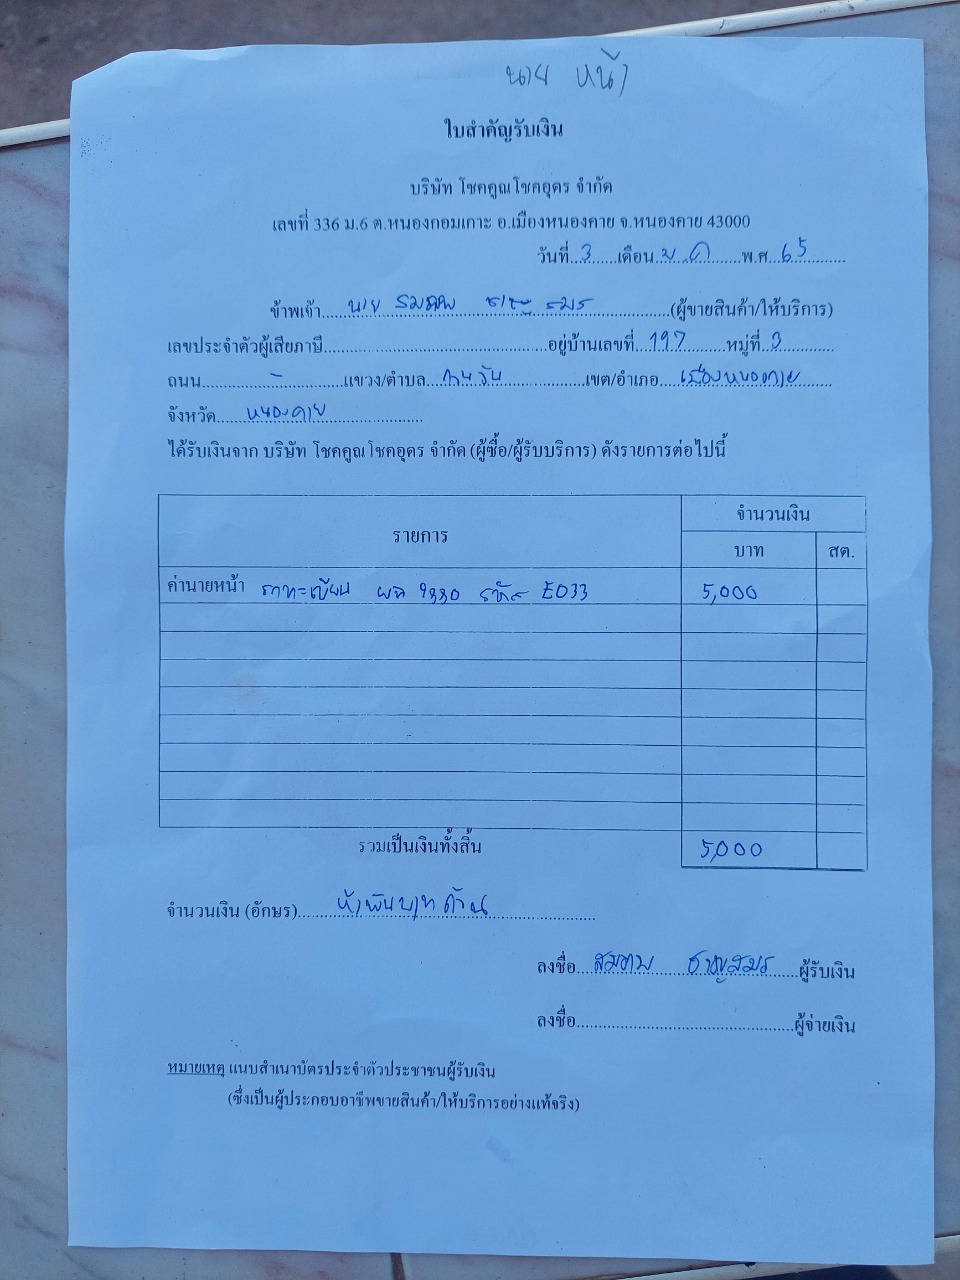 นาย หน้า
ใบสำคัญรับเงิน
บริษัท โชคคูณโชคอุดร จำกัด
เลขที่ 336 ม.6 ต.หนองกอมเกาะ อ.เมืองหนองคาย จ.หนองคาย 43000
วันที่...3......เดือน...ม.ค.......พ.ศ...65..........
ข้าพเจ้า.....นาย สมภพ..........(ผู้ขายสินค้า/ให้บริการ)
เลขประจำตัวผู้เสียภาษี..........อยู่บ้านเลขที่...197.......หมู่ที่..3..........
ถนน.......-.......แขวง/ตำบล..........เขต/อำเภอ...เมืองหนองคาย......
จังหวัด......หนองคาย..........
ได้รับเงินจาก บริษัท โชคคูณโชคอุดร จำกัด (ผู้ซื้อ/ผู้รับบริการ) ดังรายการต่อไปนี้
รายการ จำนวนเงิน
บาท สต.
ค่านายหน้า E033 5,000
รวมเป็นเงินทั้งสิ้น 5,000
จำนวนเงิน (อักษร).......ห้าพันบาทถ้วน..........
ลงชื่อ..........ผู้รับเงิน
ลงชื่อ..........ผู้จ่ายเงิน
หมายเหตุ แนบสำเนาบัตรประจำตัวประชาชนผู้รับเงิน
(ซึ่งเป็นผู้ประกอบอาชีพขายสินค้า/ให้บริการอย่างแท้จริง)